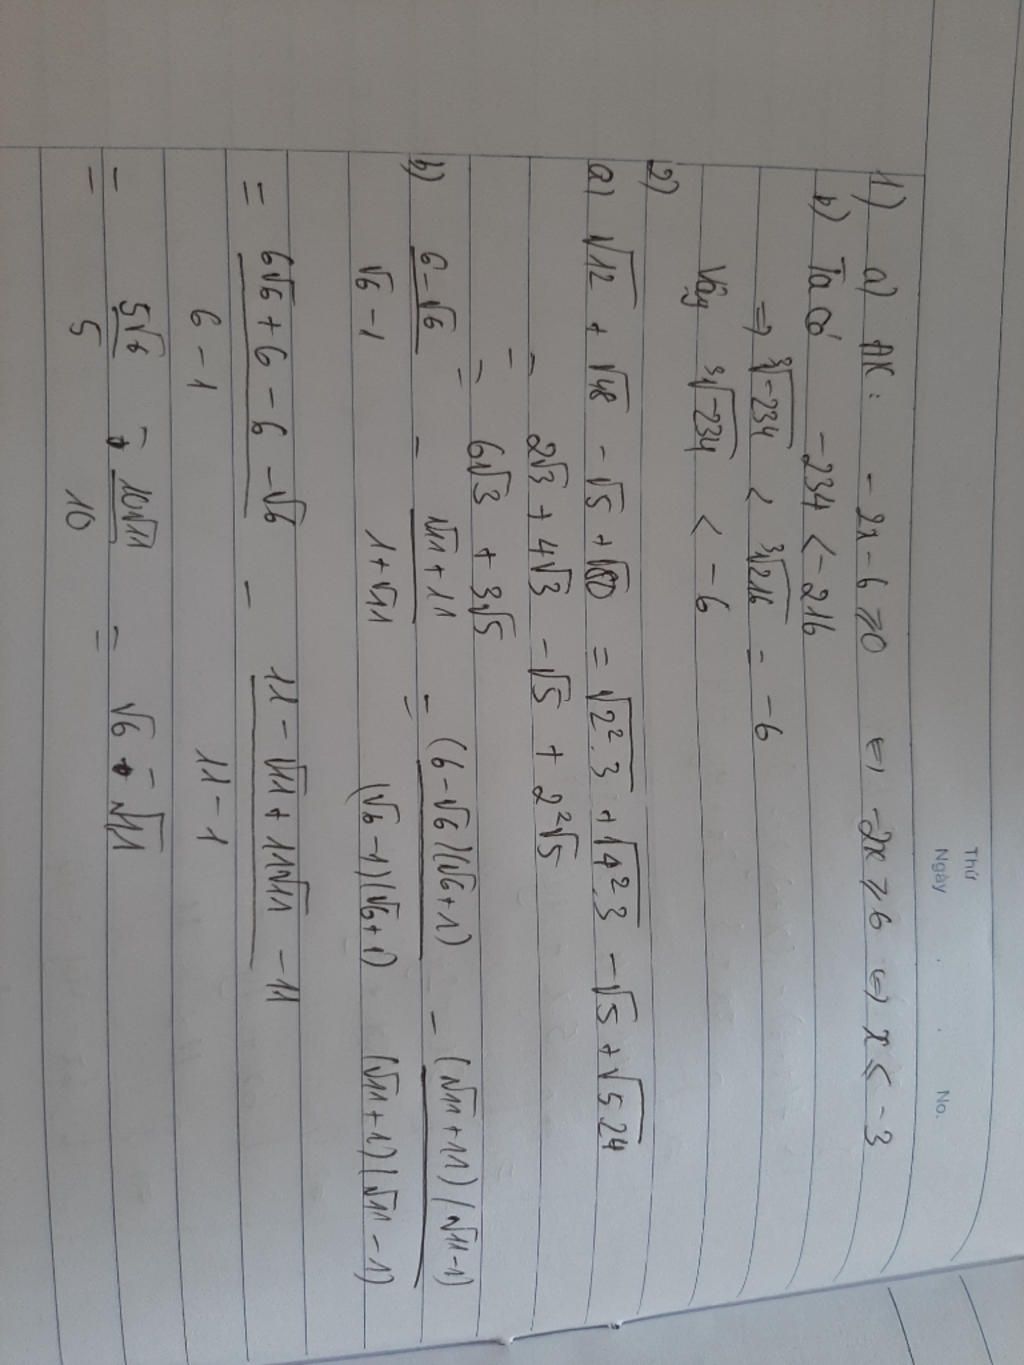 Thứ
Ngày . . No.
1) a) ĐK: -2x-6 ≥ 0 ⇔ -2x ≥ 6 ⇔ x ≤ -3
b) Ta có -234 < -216
⇒ ∛-234 < ∛216 = -6
Vậy ∛-234 < -6
2)
a) √12 + √48 - √5 + √80 = √2².3 + √4².3 - √5 + √5.24
= 2√3 + 4√3 - √5 + 2²√5
= 6√3 + 3√5
b) (6-√6)/(√6-1) - (√11+11)/(1+√11) = ((6-√6)(√6+1))/((√6-1)(√6+1)) - ((√11+11)(√11-1))/((√11+1)(√11-1))
= (6√6+6-6-√6)/(6-1) - (11-√11+11√11-11)/(11-1)
= 5√6/5 - 10√11/10 = √6 - √11